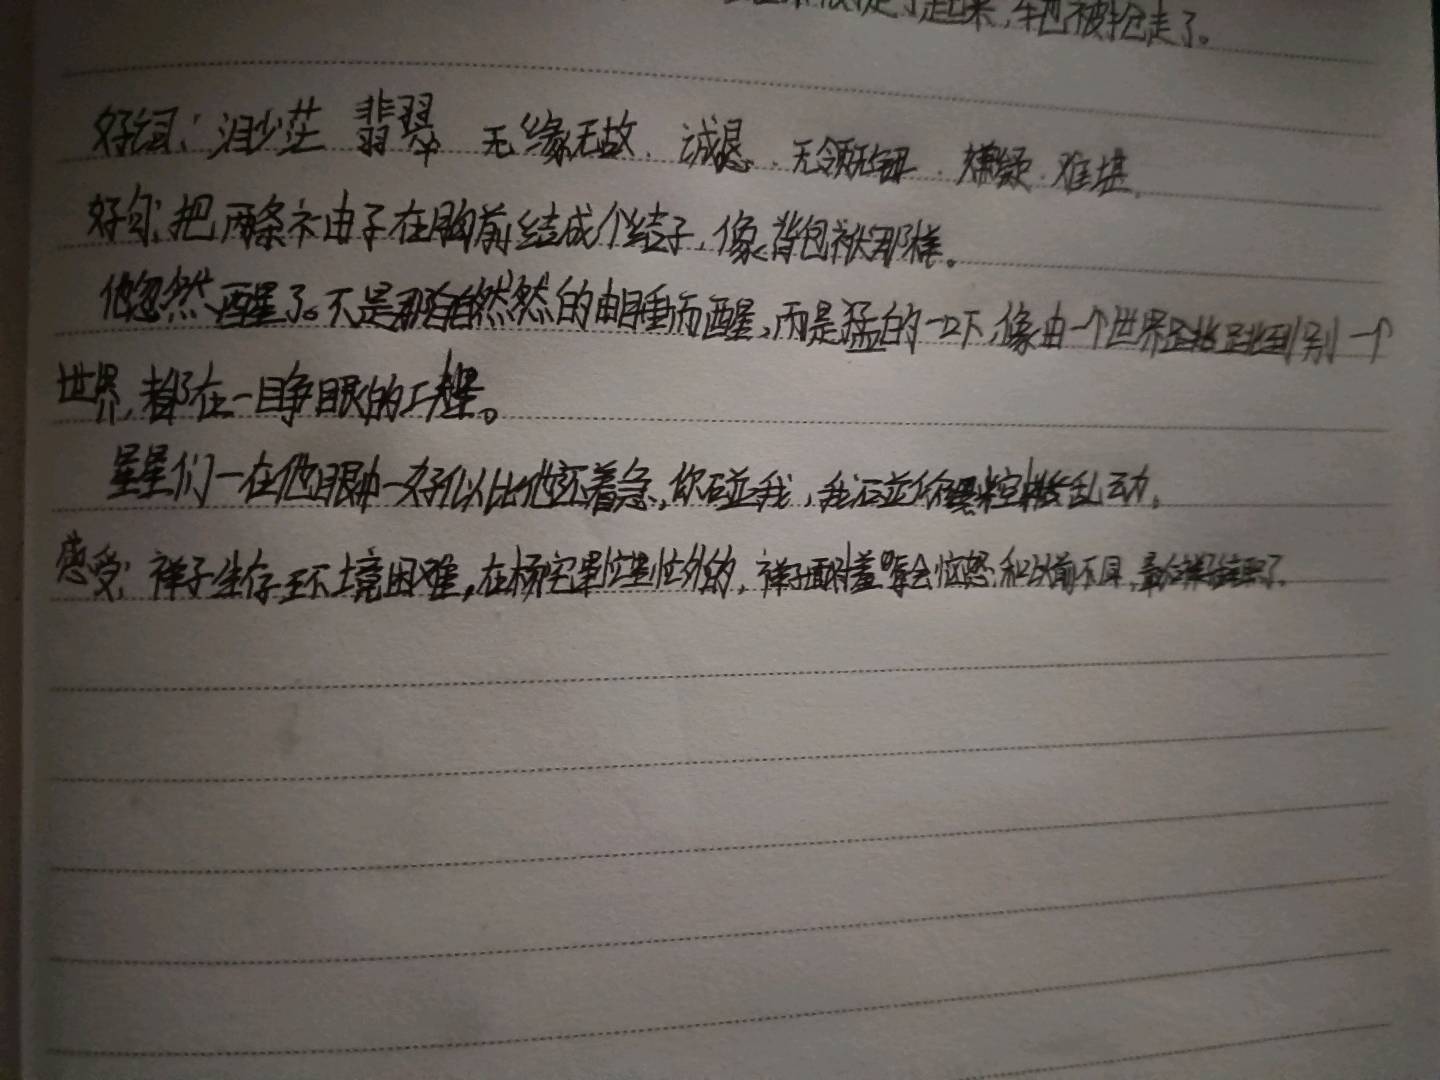 起来,车也被抢走了。
好词: 翡翠 无缘无故、诚恳、无领无钮、嫌疑、难堪
好句:把两条袖子在胸前结成个结子,像背包袱那样。
他忽然醒了。不是那自自然然的由睡而醒,而是猛的一下,像由一个世界跳到别一个
世界,都在一睁眼的工程。
星星们一在他眼中一好似比他还着急,你碰我,我碰你 乱动。
感受:祥子生存环境困难,在杨宅 的,祥子面对羞辱会愤怒和以前不同, 了。